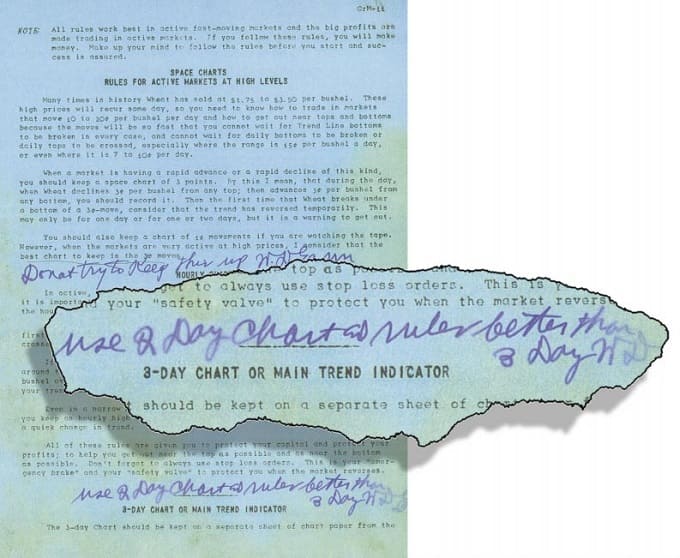 GrM-16
NOTE: All rules work best in active fast-moving markets and the big profits are
made trading in active markets. If you follow these rules, you will make
money. Make up your mind to follow the rules before you start and suc-
cess is assured.
SPACE CHARTS
RULES FOR ACTIVE MARKETS AT HIGH LEVELS
Many times in history Wheat has sold at $1.75 to $3.50 per bushel. These
high prices will recur some day, so you need to know how to trade in markets
that move 10 to 20¢ per bushel per day and how to get out near tops and bottoms
because the moves will be so fast that you cannot wait for Trend Line bottoms
to be broken in every case, and cannot wait for daily bottoms to be broken or
daily tops to be crossed, especially where the range is 15¢ per bushel a day,
or even where it is 7 to 10¢ per day.
When a market is having a rapid advance or a rapid decline of this kind,
you should keep a space chart of 3 points. By this I mean, that during the day,
when Wheat declines 3¢ per bushel from any top; then advances 3¢ per bushel from
any bottom, you should record it. Then the first time that Wheat breaks under
a bottom of a 3¢-move, consider that the trend has reversed temporarily. This
may only be for one day or for one or two days, but it is a warning to get out.
You should also keep a chart of 1¢ movements if you are watching the tape.
However, when the markets are very active at high prices, I consider that the
best chart to keep is the 3¢ moves.
Do not try to Keep this up W D Gann
HOURLY
top as
In active,
to always use stop loss orders. This is
it is important
your "safety valve" to protect you when the market revers
the hou
use 2 Day Chart and rules better than
3 Day W D
first
3-DAY CHART OR MAIN TREND INDICATOR
around
bushel
your tra
should be kept on a separate sheet of
Even in a narrow
you keep an hourly high
a quick change in trend.
All of these rules are given you to protect your capital and protect your
profits; to help you get out near the top as possible and as near the bottom
as possible. Don't forget to always use stop loss orders. This is your "emer-
gency brake" and your "safety valve" to protect you when the market reverses.
use 2 Day Chart and rules better than
3 Day W D G
3-DAY CHART OR MAIN TREND INDICATOR
The 3-day Chart should be kept on a separate sheet of chart paper from the